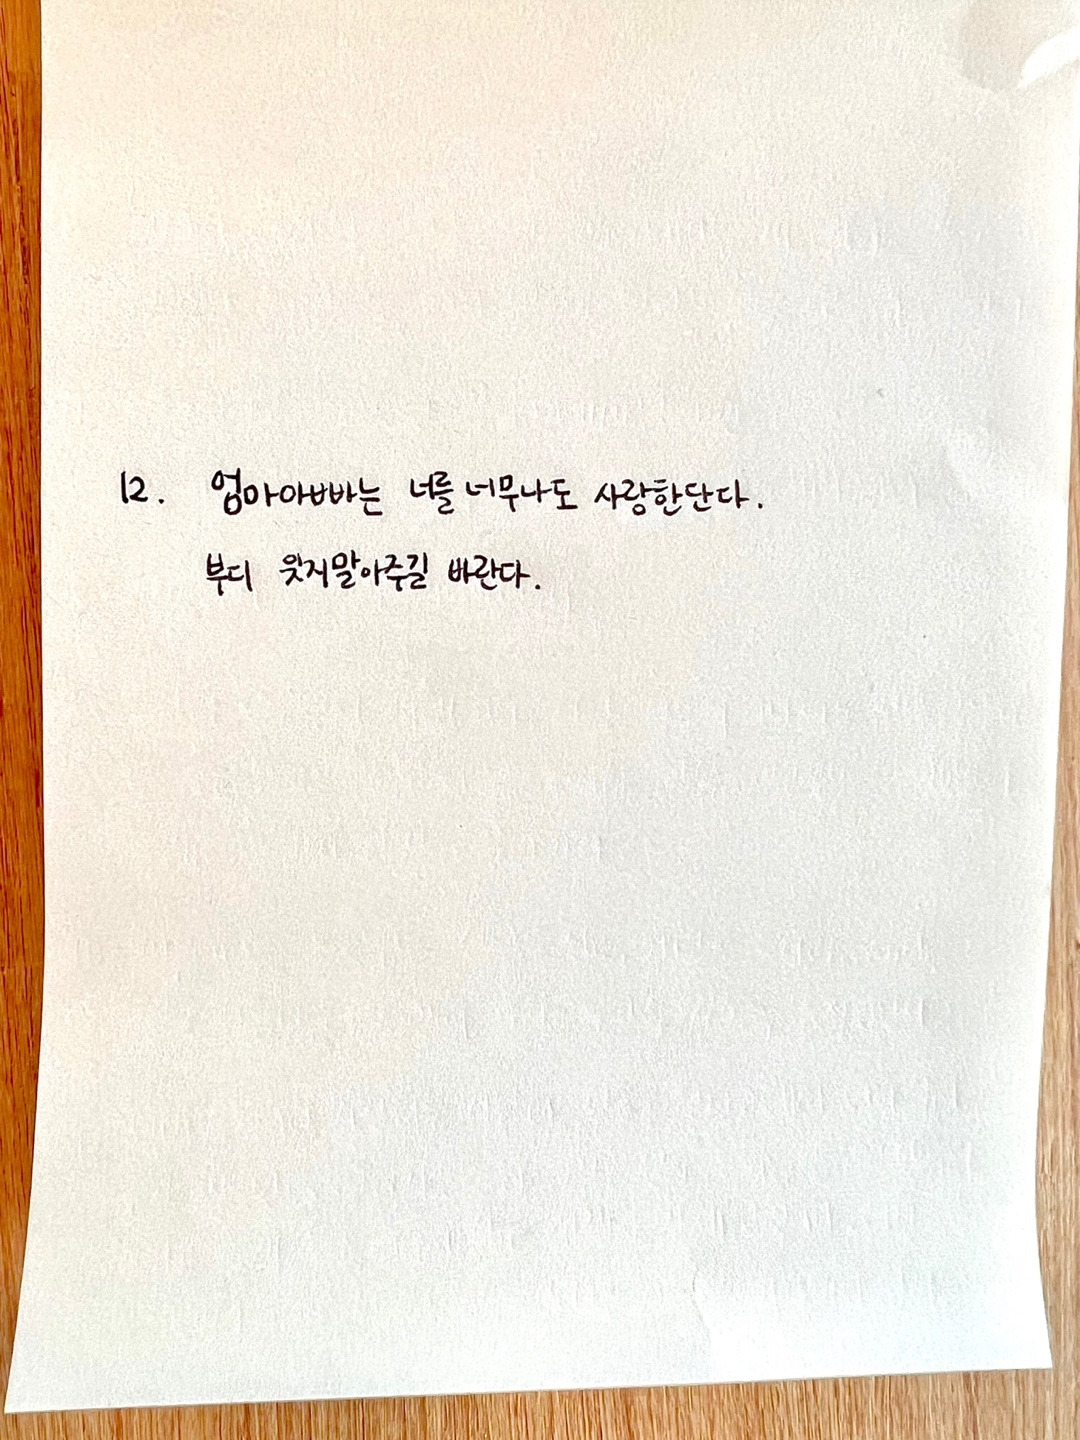 12. 엄마아빠는 너를 너무나도 사랑한단다.
부디 웃지말아주길 바란다.